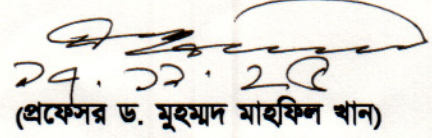 ২৭. ১১. ২৫
(প্রফেসর ড. মুহম্মাদ মাহফিল খান)